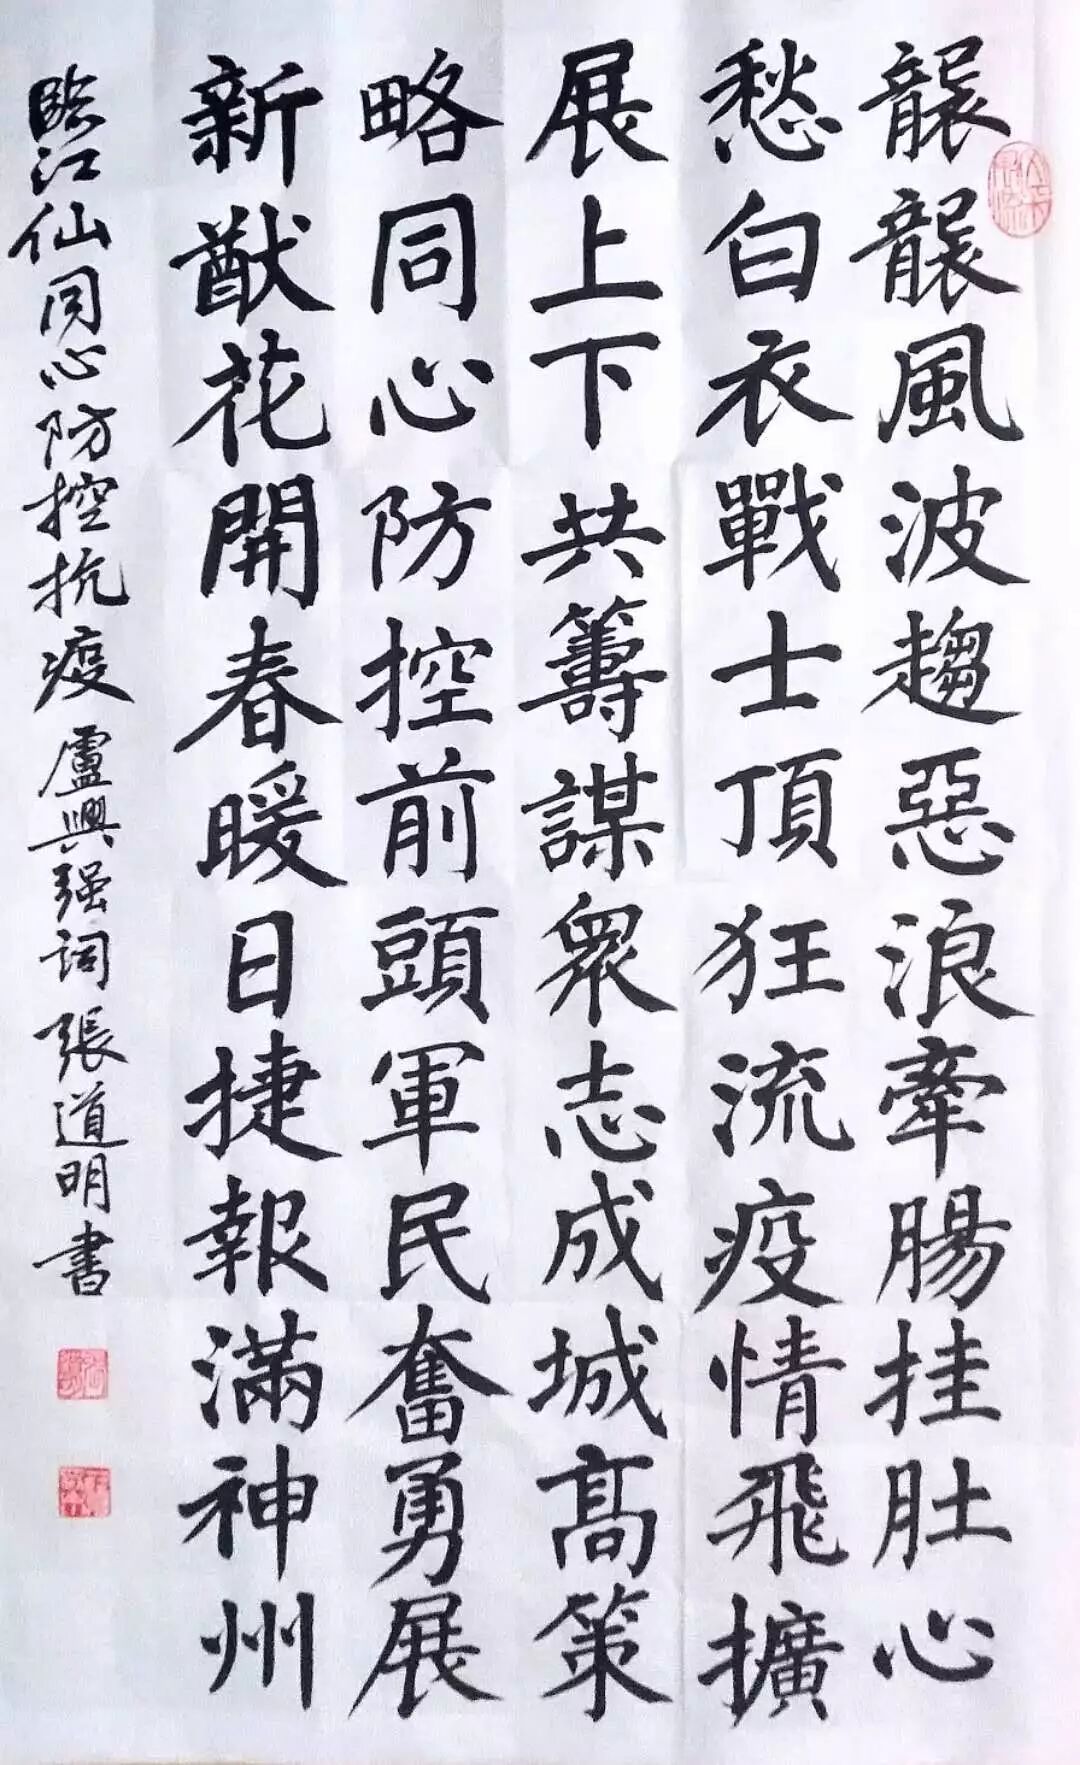 襲襲風波趨惡浪牽腸挂肚心
愁白衣戰士頂狂流疫情飛擴
展上下共籌謀眾志成城髙策
略同心防控前頭軍民奮勇展
新猷花開春暖日捷報滿神州
臨江仙同心防控抗疫盧興强詞張道明書